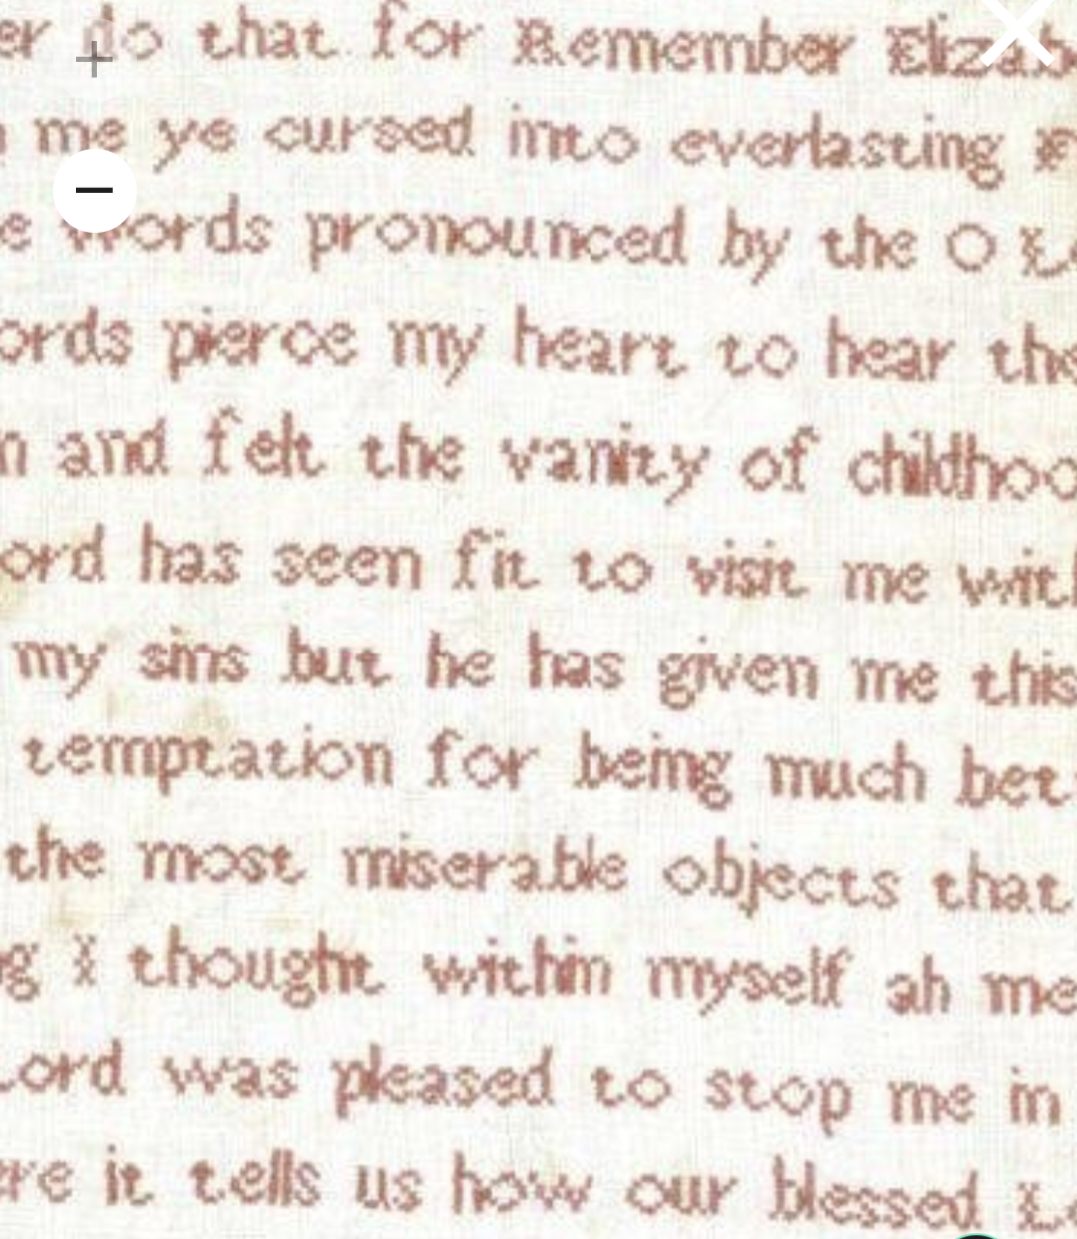 er do that for Remember Elizab
me ye cursed into everlasting
e words pronounced by the O Lo
ords pierce my heart to hear the
n and felt the vanity of childhoo
ord has seen fit to visit me with
my sins but he has given me this
temptation for being much bet
the most miserable objects that
ng I thought within myself ah me
Lord was pleased to stop me in
ere it tells us how our blessed Lo